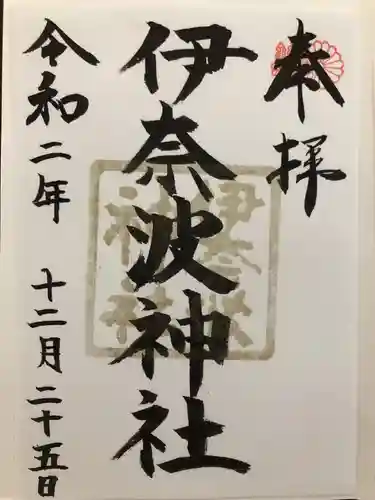 奉拝
伊奈波神社
令和二年 十二月二十五日
伊奈波
神社